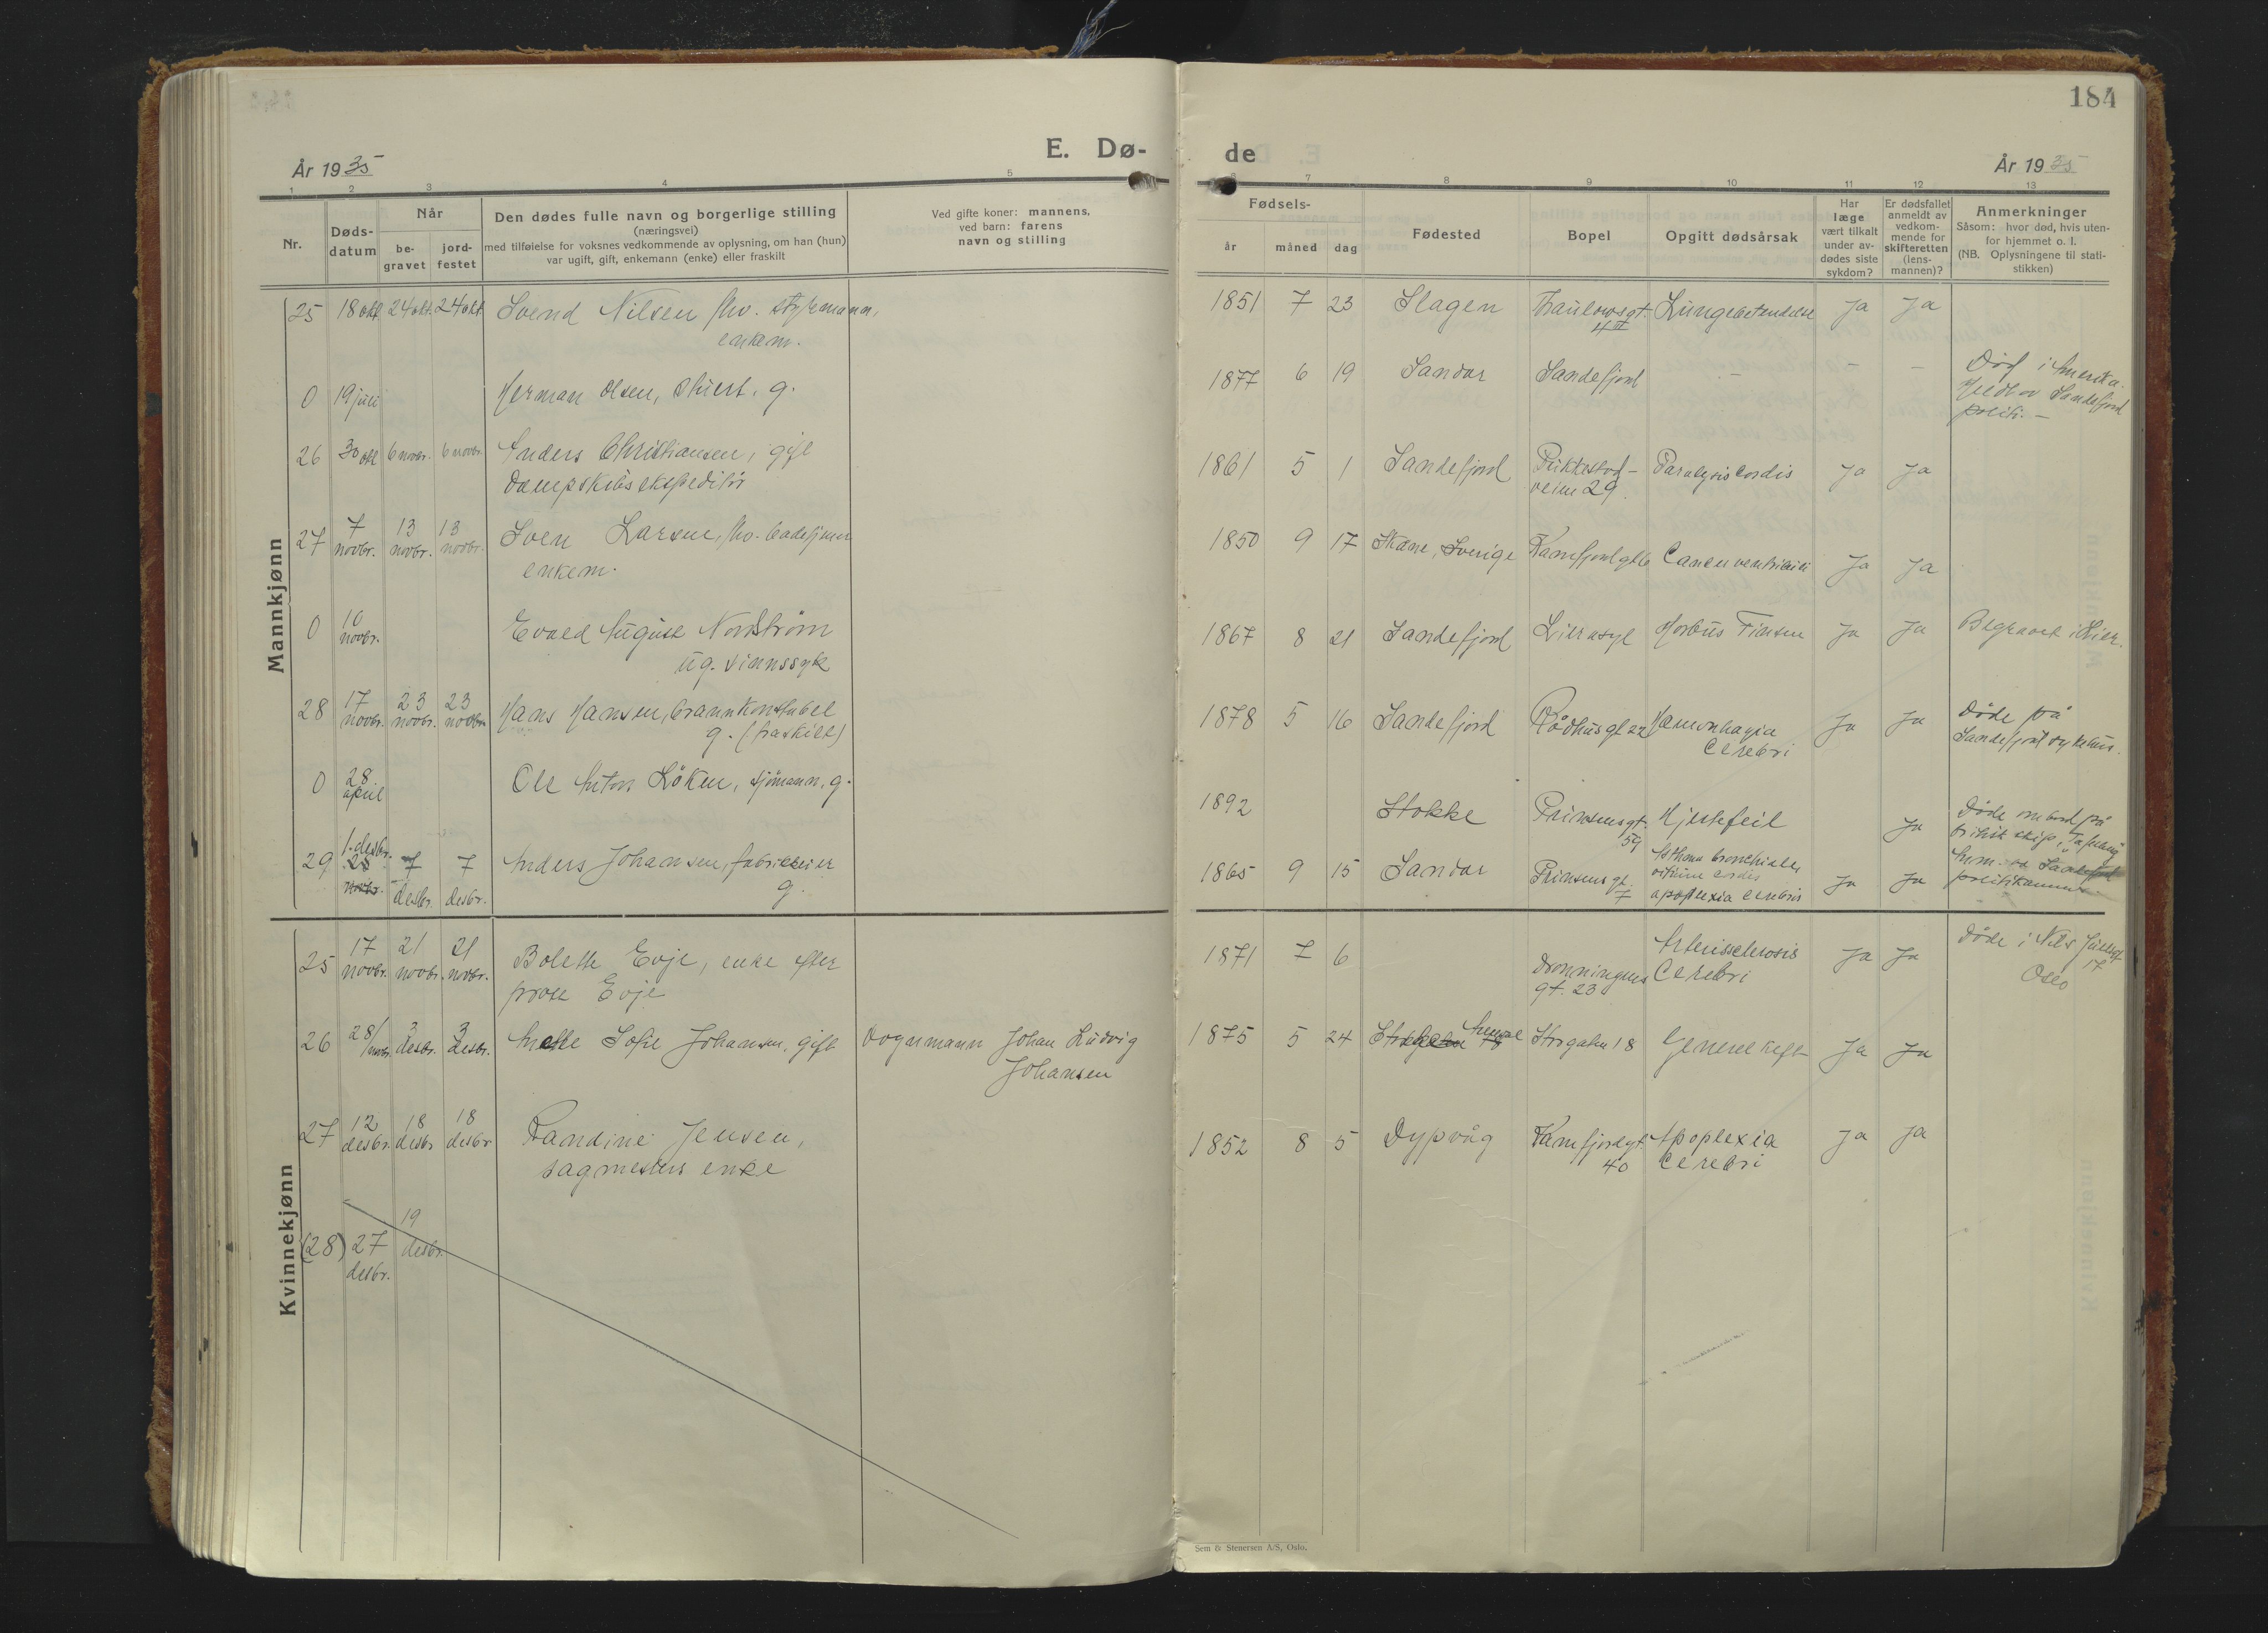 184
E. Dø-
de
År 1935
År 1935
1 2 3 4 5
6 7 8 9 10 11 12 13
Nr.
Døds-
datum
Når
be-
gravet
jord-
festet
Den dødes fulle navn og borgerlige stilling
(næringsvei)
med tilføielse for voksnes vedkommende av oplysning, om han (hun)
var ugift, gift, enkemann (enke) eller fraskilt
Ved gifte koner: mannens,
ved barn: farens
navn og stilling
Fødsels-
år måned dag
Fødested
Bopel
Opgitt dødsårsak
Har
læge
vært tilkalt
under av-
dødes siste
sykdom?
Er dødsfallet
anmeldt av
vedkom-
mende for
skifteretten
(lens-
mannen)?
Anmerkninger
Såsom: hvor død, hvis uten-
for hjemmet o. l.
(NB. Oplysningene til stati-
stikken)
Mannkjønn
25 18 okt. 24 okt. 24 okt. Svend Nilsen fhv. styrmann,
enkem.
1851 7 23 Slagen Thaulowsgt. Lungebetendelse Ja Ja
4 II
0 19 juli Herman Olsen, stuert, g.
1877 6 19 Sandar Sandefjord - - - Død i Amerika.
Sandefjord
politi. -
26 30 okt 6 novbr. 6 novbr. Anders Christiansen, gift
Dampskibsekspeditør
1861 5 1 Sandefjord Paralysis Cordis Ja Ja
veien 29.
27 7 novbr. 13 novbr. 13 novbr. Sven Larsen, fhv.
enkem.
1850 9 17 Skåne, Sverige Kamfjordgt 6 Cancer ventriculi Ja Ja
0 10 novbr. Evald August Nordstrøm
ug. sinnssyk
1867 8 21 Sandefjord Lier asyl Morbus Ja Ja Begravet i Lier.
28 17 novbr. 23 novbr. 23 novbr. Hans Hansen, brannkonstabel
g. (fraskilt)
1878 5 16 Sandefjord Rådhusgt 22 Hæmorrhagia Ja Ja Døde på
Cerebri Sandefjord sykehus.
0 28 april Ole Anton Løken, sjømann, g.
1892 Stokke Prinsensgt. Hjertefeil Ja Døde ombord på
59 britisk skip,
29 1. desbr. 28 novbr. 7 desbr. 7 desbr. Anders Johansen, fabrikkeier
g.
1865 9 15 Sandar Prinsensgt. Asthma bronchiale, Ja Ja Anm. Sandefjord
7 vitium cordis politikammer
apoplexia cerebri
Kvinnekjønn
25 17 novbr. 21 novbr. 21 novbr. Bolette Evje, enke efter
prost Evje
1871 7 6 Dronningens Arteriosclerosis Ja Ja Døde i Nils Juelsgt
gt. 23 Cerebri 17
Oslo
26 28/novbr. 3 desbr. 3 desbr. Anette Sofie Johansen, gift Vognmann Johan Ludvig
Johansen
1875 5 24 Storgaten 18 Ja Ja
27 12 desbr. 18 desbr 18 desbr Randine Jensen,
sagmesters enke
1852 8 5 Dypvåg Kamfjordgt. Apoplexia Ja Ja
40 Cerebri
(28) 27 desbr. 19 desbr.
Sem & Stenersen A/S, Oslo.